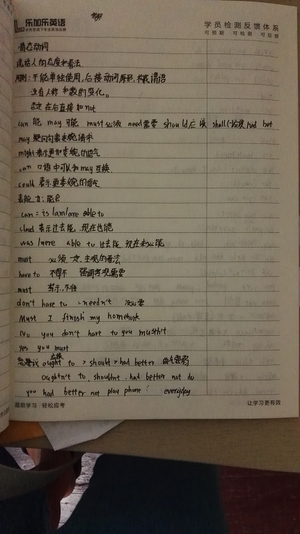 乐加乐英语
学员检测反馈体系
可预期 可检测 可反馈
情态动词
说话人的态度和看法
用法:不能单独使用,后接动词原形,构成谓语
没有人称和数的变化。
否定在后直接加not
can 能 may 可能 must 必须 need 需要 should 应该 shall had bet
may 疑问句表委婉请求
might 表示更加委婉的语气
can 口语中可和may互换
could 表示更委婉的语气
表能力:能会
can = is/am/are able to
could 表示过去能,现在也能
was/were able to 过去能,现在
must 必须一定,主观的看法
have to 不得不 强调客观需要
must
don't have to = needn't 不必要
Must I finish my homework
No you don't have to you mustn't
yes you must
ought to > should > had better
oughtn't to shouldn't had better not do
you had better not play phone everyday
超前学习·轻松应考
让学习更有效